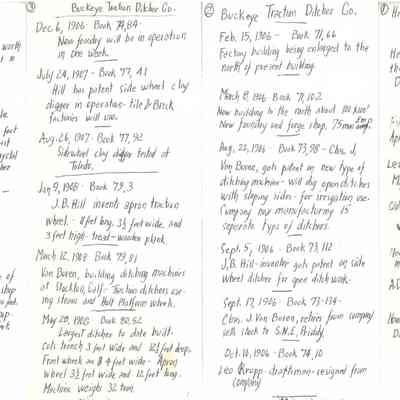 ③ Buckeye Traction Ditcher Co.
Dec 6, 1906 - Book 74, 84 -
New foundry will be in operation
in one week.
July 24, 1907 - Book 77, 41
Hill has patent side wheel clay
digger in operation - Tile & Brick
factories will use.
Aug. 26, 1907 - Book 77, 92
Sidewheel clay digger tested at
Toledo.
Jan 9, 1908 - Book 79, 3
J. B. Hill invents apron traction
wheel. - feet long. 3½ feet wide. and
3 feet high - tread - wooden plank.
March 12, 1908 Book 79, 81
Van Buren, building ditching machines
at Stockton, Calif - Traction ditchers us-
ing steam and Holt Platform wheels.
May 20, 1908 Book 80, 52
Largest ditcher to date built.
Cuts trench 3 feet wide and 12½ feet deep.
Front wheels 4 feet wide - Apron
wheel 3½ feet wide and 12 feet long.
Machine weighs 32 tons.
② Buckeye Traction Ditcher Co.
Feb. 15, 1906 - Book 71, 66
Factory building being enlarged to the
north of present building.
March 8, 1906 - Book 71, 102
New building to the north about 100
New foundry and forge shop. 75 men emp.
Aug. 22, 1906 - Book 73, 98 - Chas. J.
Van Buren, gets patent on new type of
ditching machine - Will dig open ditches
with sloping sides - for irrigation use -
Company now manufacturing 15
seperate types of ditchers.
Sept. 5, 1906 - Book 73, 112
J. B. Hill - inventor gets patent on side
wheel ditcher for open ditch work.
Sept. 17, 1906 - Book 73 - 134 -
Chas. J. Van Buren, retires from company
sells stock to S.M.E. Priddy.
Oct. 10, 1906 - Book 74, 10
Leo Krupp - draftsman - resigned from
company